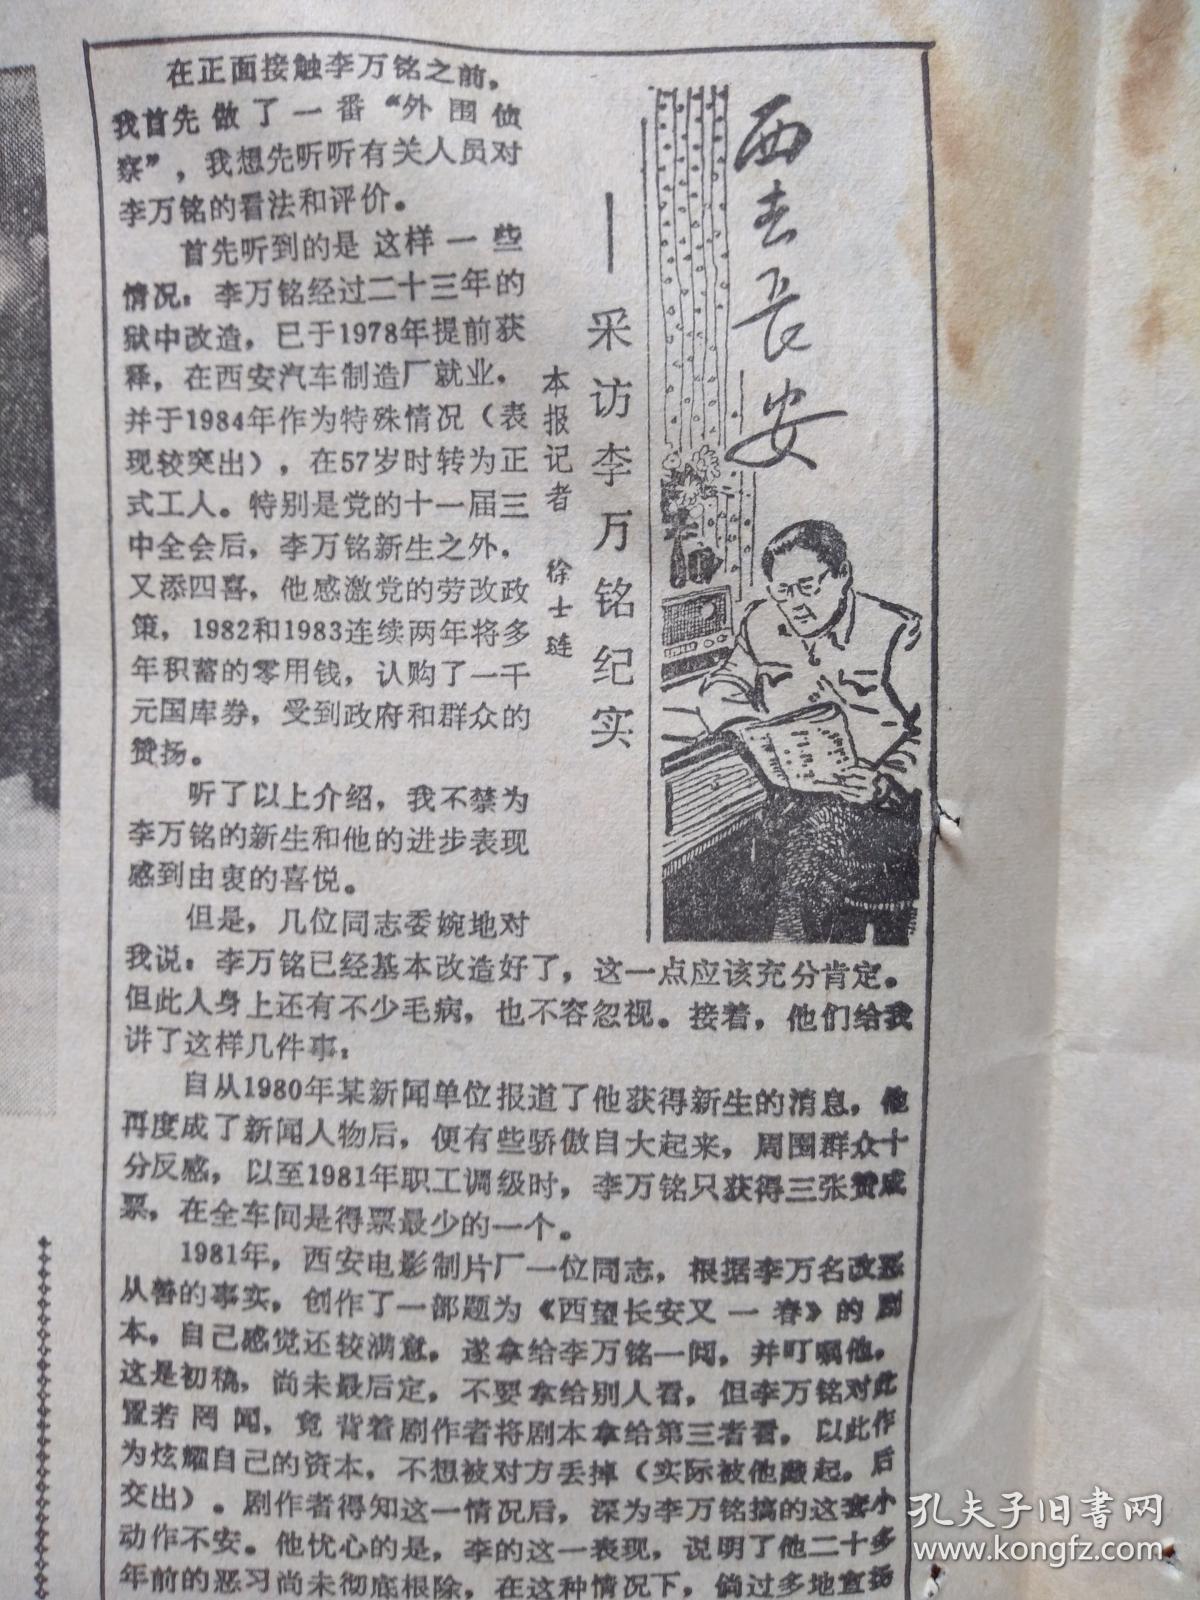 西去长安
——采访李万铭纪实
本报记者 徐士琏
在正面接触李万铭之前，
我首先做了一番“外围侦
察”，我想先听听有关人员对
李万铭的看法和评价。
首先听到的是这样一些
情况：李万铭经过二十三年的
狱中改造，已于1978年提前获
释，在西安汽车制造厂就业。
并于1984年作为特殊情况（表
现较突出），在57岁时转为正
式工人。特别是党的十一届三
中全会后，李万铭新生之外，
又添四喜，他感激党的劳改政
策，1982和1983连续两年将多
年积蓄的零用钱，认购了一千
元国库券，受到政府和群众的
赞扬。
听了以上介绍，我不禁为
李万铭的新生和他的进步表现
感到由衷的喜悦。
但是，几位同志委婉地对
我说：李万铭已经基本改造好了，这一点应该充分肯定。
但此人身上还有不少毛病，也不容忽视。接着，他们给我
讲了这样几件事：
自从1980年某新闻单位报道了他获得新生的消息，他
再度成了新闻人物后，便有些骄傲自大起来，周围群众十
分反感，以至1981年职工调级时，李万铭只获得三张赞成
票，在全车间是得票最少的一个。
1981年，西安电影制片厂一位同志，根据李万名改恶
从善的事实，创作了一部题为《西望长安又一春》的剧
本，自己感觉还较满意，遂拿给李万铭一阅，并叮嘱他，
这是初稿，尚未最后定，不要拿给别人看，但李万铭对此
置若罔闻，竟背着剧作者将剧本拿给第三者看，以此作
为炫耀自己的资本，不想被对方丢掉（实际被他藏起，后
交出）。剧作者得知这一情况后，深为李万铭搞的这套小
动作不安。他忧心的是，李的这一表现，说明了他二十多
年前的恶习尚未彻底根除，在这种情况下，倘过多地宣扬
孔夫子旧书网
www.kongfz.com